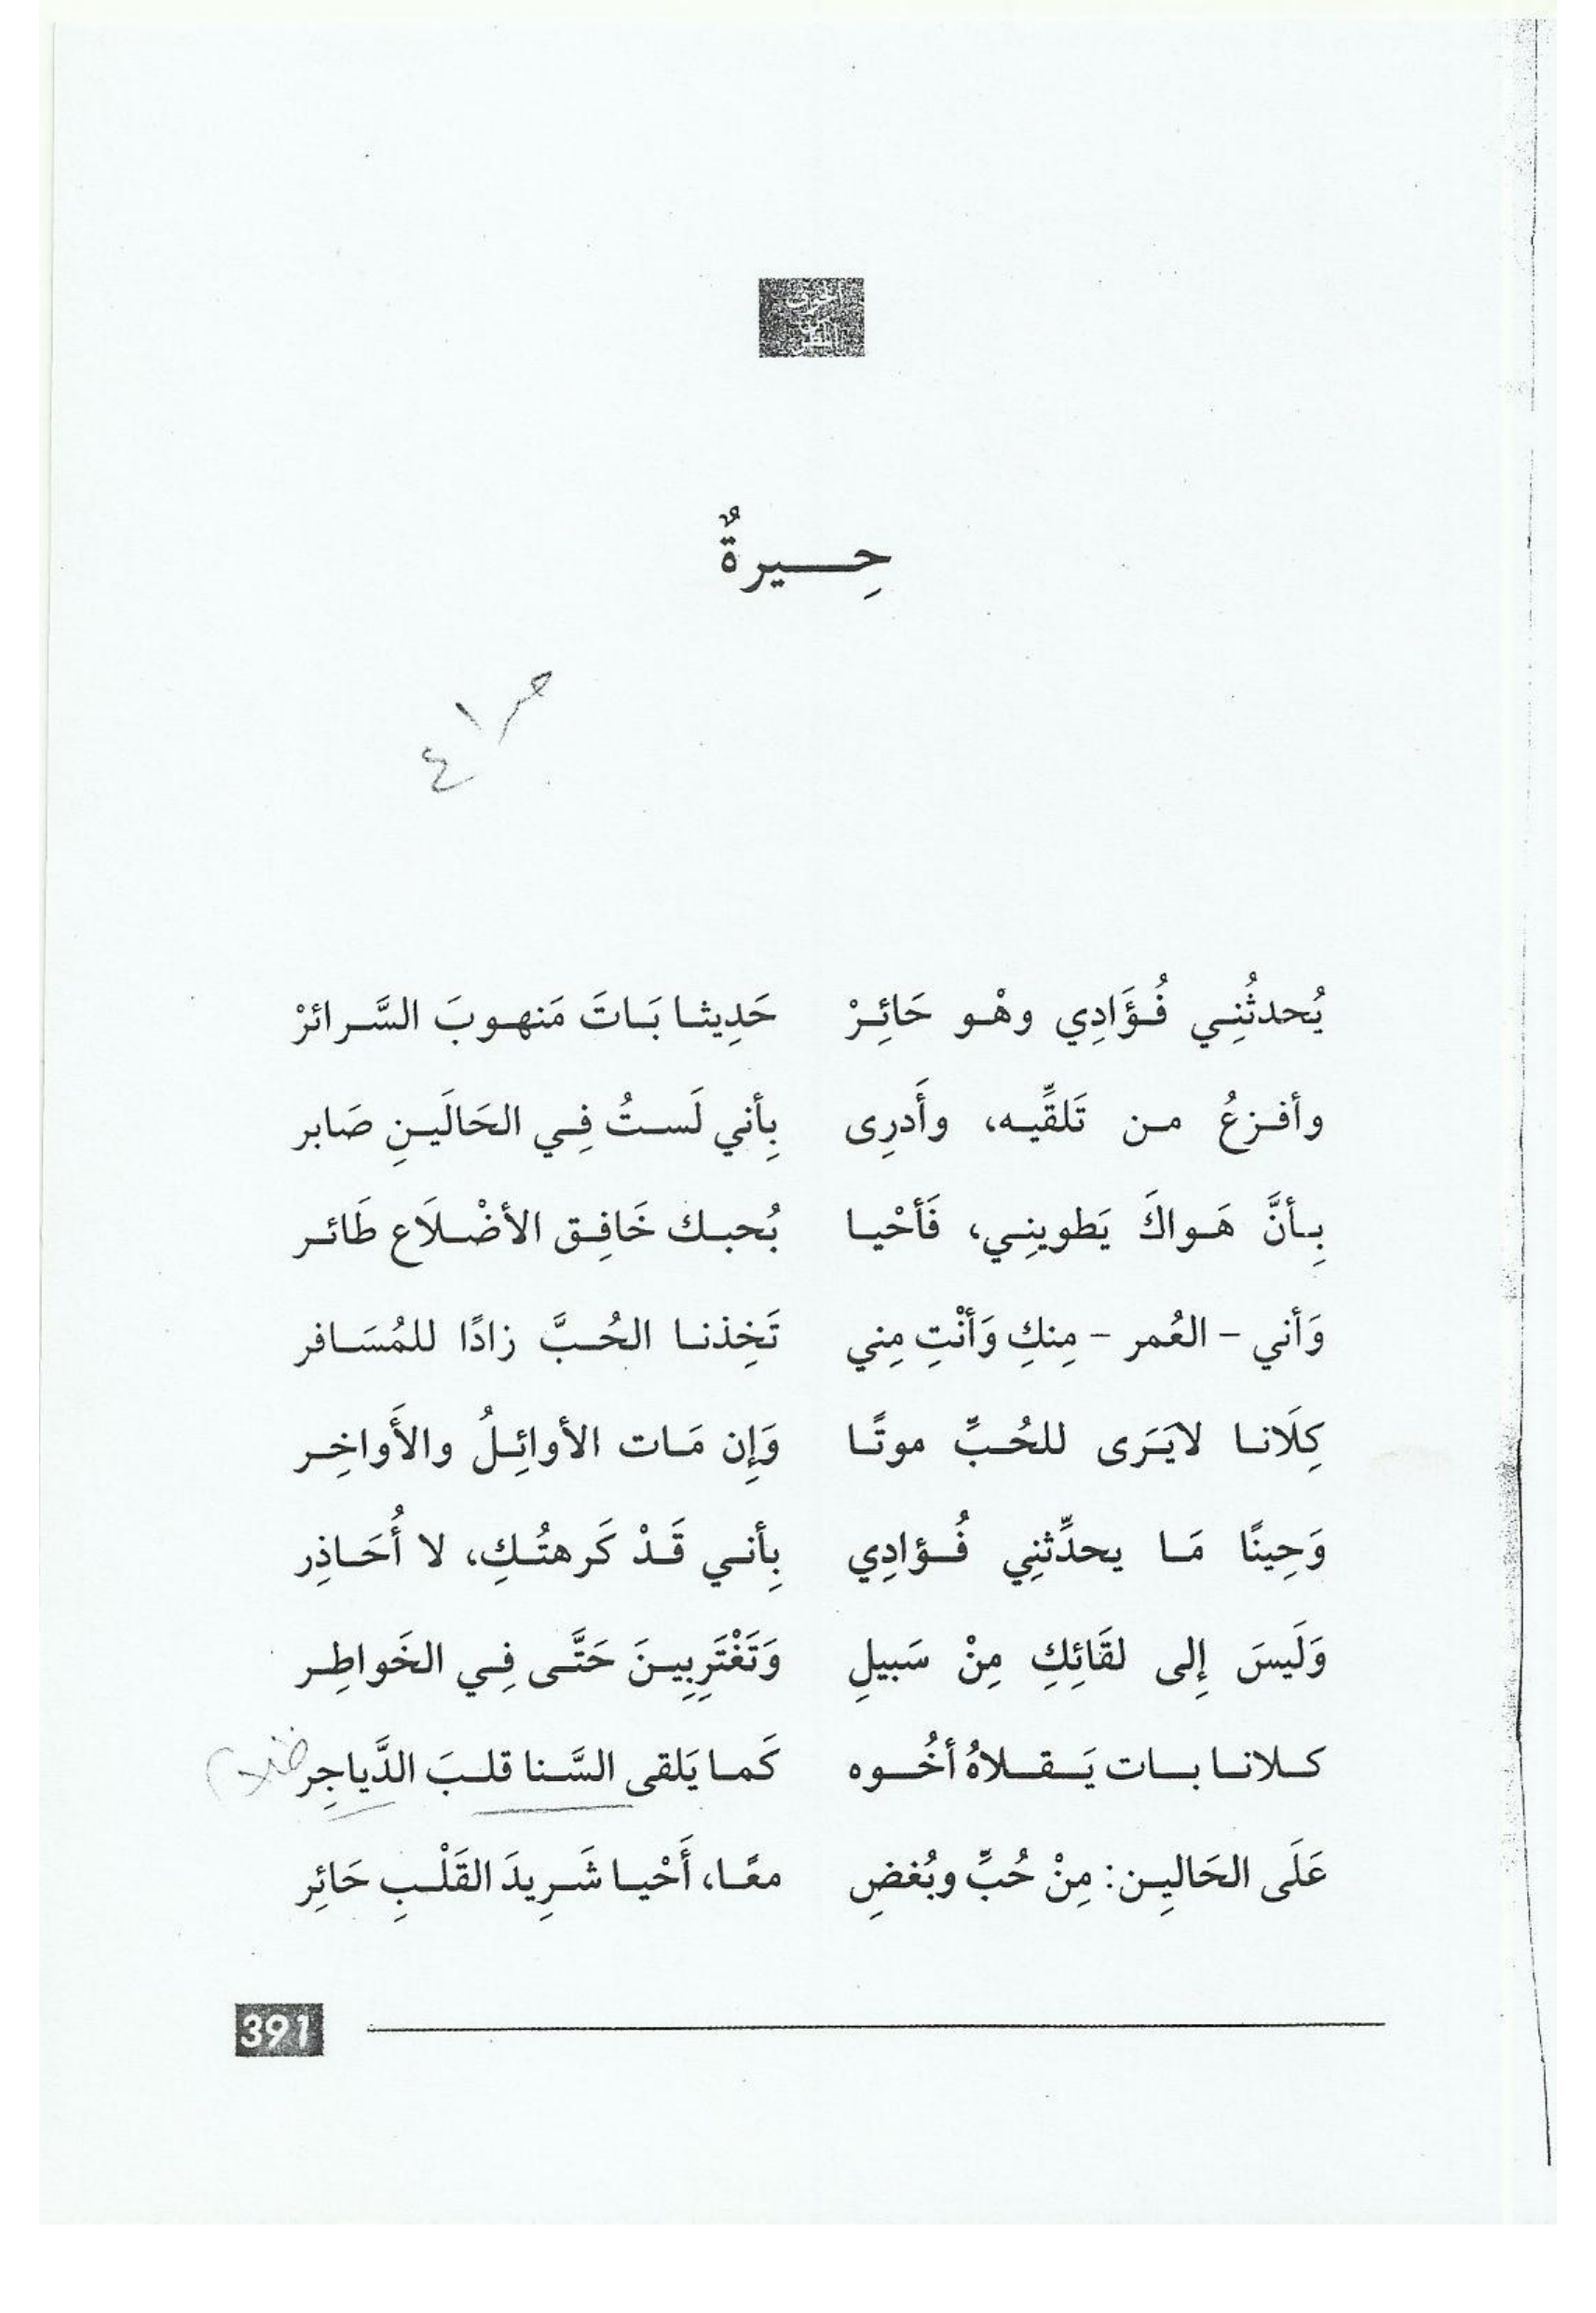 الخوف
من
المطر
حِـــيرةٌ
ص ٤١
يُحدثُنِي فُؤَادِي وهْو حَائِرْ حَدِيثا بَاتَ مَنهوبَ السَّرائرْ
وأفزعُ من تَلقِّيه، وأَدرِى بِأني لَستُ فِي الحَالَينِ صَابر
بِأنَّ هَواكَ يَطوينِي، فَأحْيا بُحبك خَافِق الأضْلَاع طَائر
وَأني - العُمر - مِنكِ وَأنْتِ مِني تَخِذنا الحُبَّ زادًا للمُسَافر
كِلَانا لايَرَى للحُبِّ موتًا وَإِن مَات الأوائِلُ والأَواخِر
وَحِينًا مَا يحدِّثنِي فُؤادِي بِأني قَدْ كَرهتُكِ، لا أُحَاذِر
وَلَيسَ إِلى لقَائِكِ مِنْ سَبيلِ وَتَغْتَرِبِينَ حَتَّى فِي الخَواطِر
كلانا بات يَقلاهُ أخُوه كَما يَلقى السَّنا قلبَ الدَّياجِر ظلام
عَلَى الحَالينِ: مِنْ حُبٍّ وبُغضِ معًا، أَحْيا شَرِيدَ القَلْبِ حَائِر
391